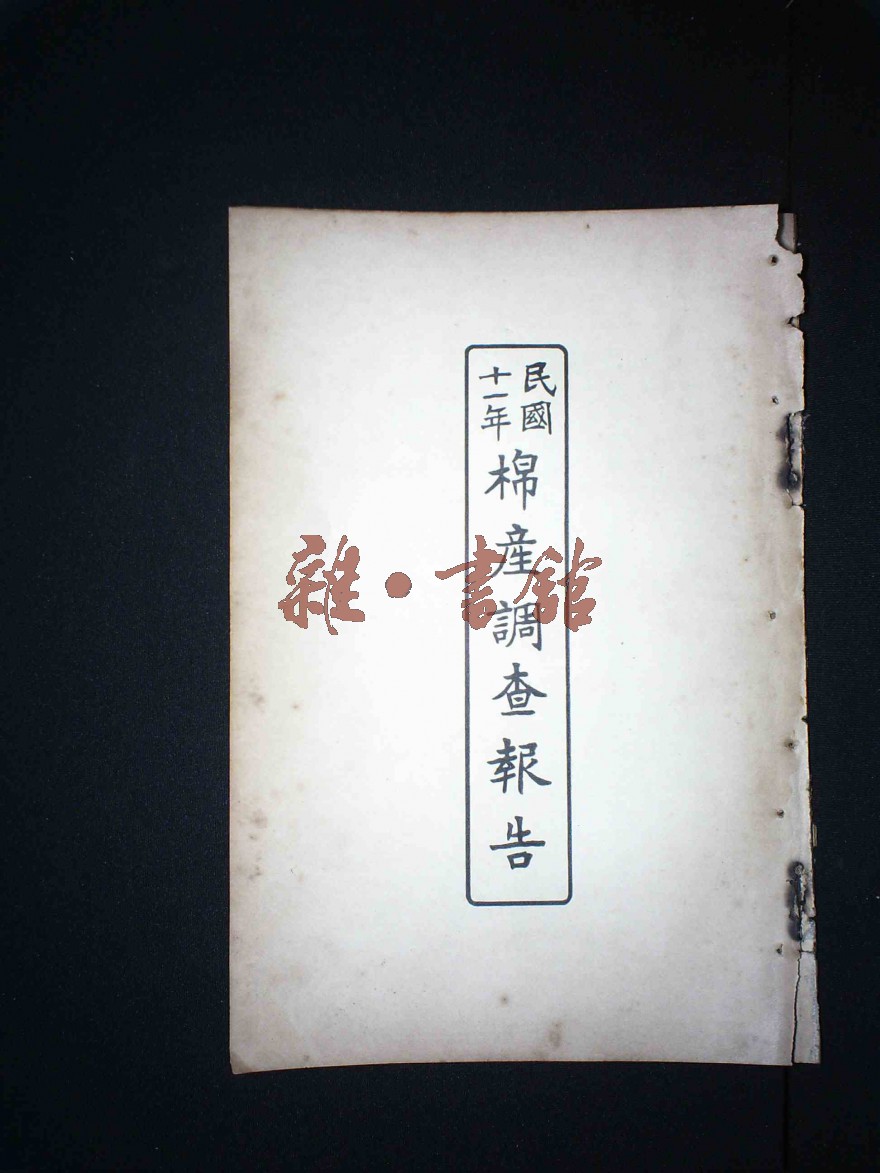 民國
十一年
棉産調查報告
雜·書館